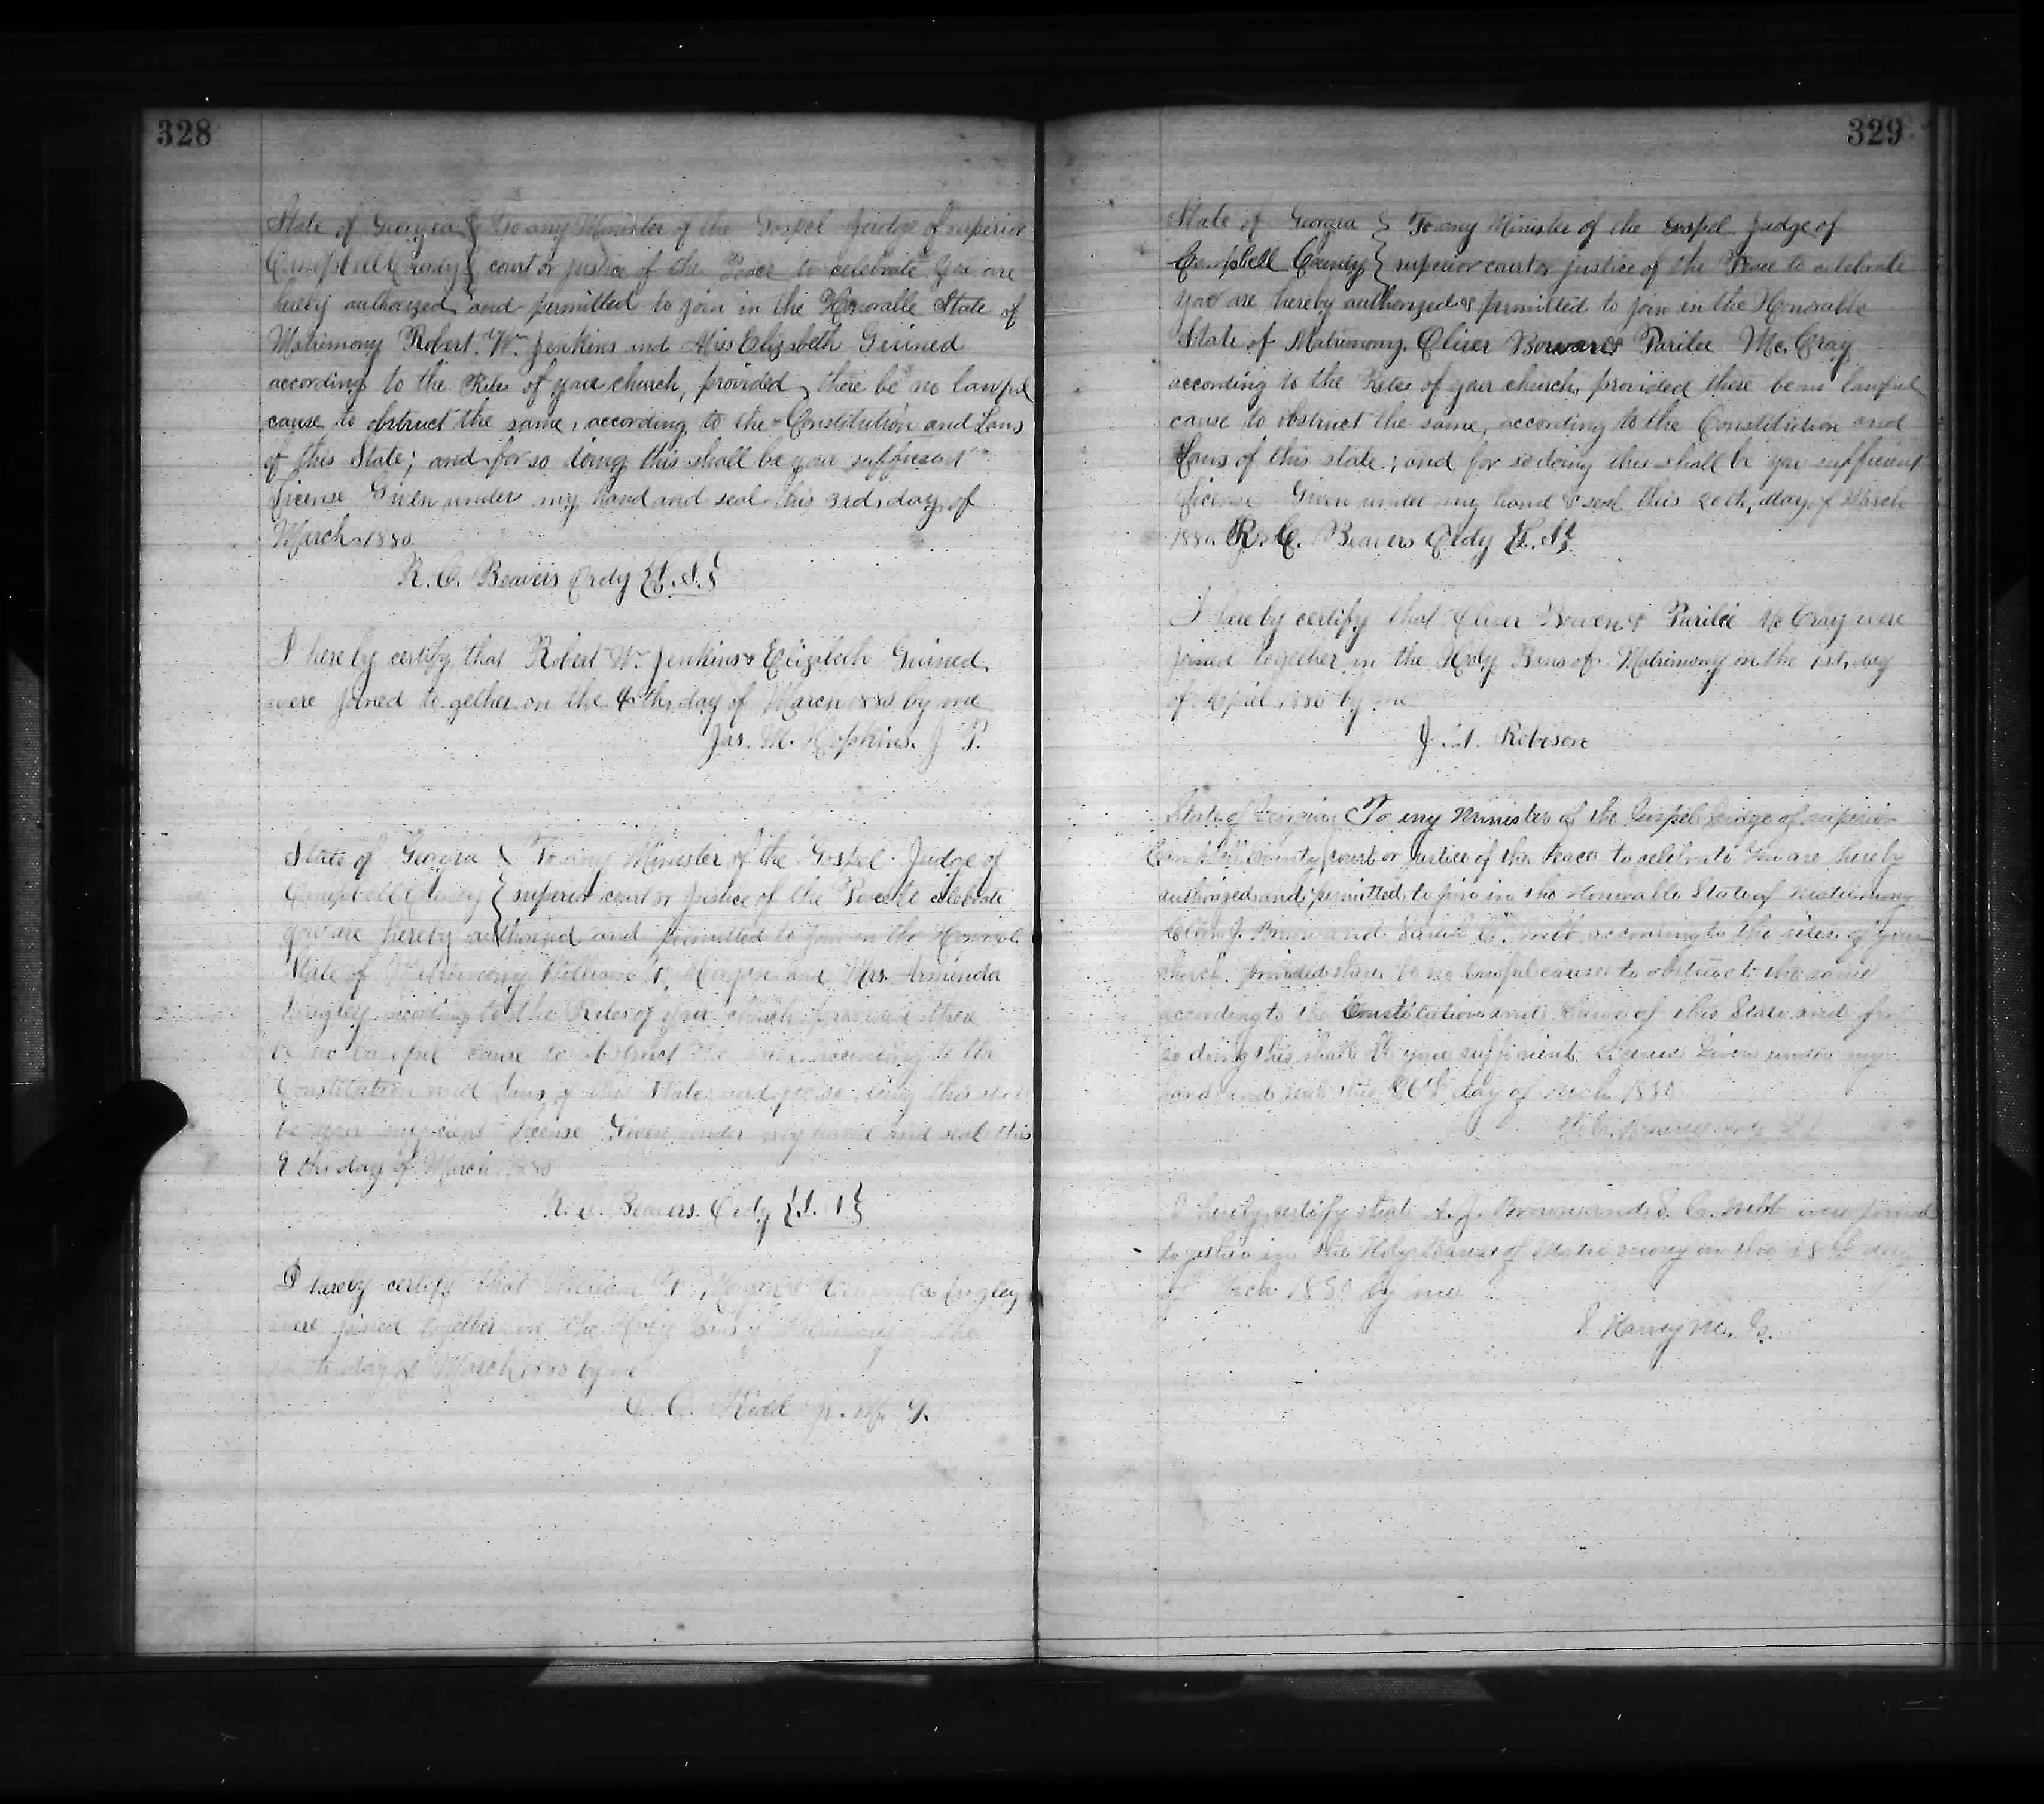 328
State of Georgia } To any Minister of the Gospel Judge of superior
Campbell County } court or justice of the Peace to celebrate You are
hereby authorized and permitted to join in the Honorable State of
Matrimony Robert. W. Jenkins and Miss Elizabeth Guined
according to the Rites of your church, provided there be no lawful
cause to obstruct the same, according to the Constitution and Laws
of this State; and for so doing this shall be your sufficient
License Given under my hand and seal this 3rd, day of
March 1880
R. C. Beavers Ordy {L.S.}
I hereby certify that Robert W. Jenkins & Elizabeth Guined,
were joined to gether on the 4th, day of March 1880 by me
Jas. M. Hopkins. J P.
State of Georgia } To any Minister of the Gospel Judge of
Campbell County } superior court or justice of the Peace to celebrate
you are hereby authorized and permitted to join in the Honorable
State of Matrimony William and Mrs. Arminda
according to the Rites of your church provided there
be no lawful cause to obstruct the same according to the
Constitution and Laws of this State and for so doing this shall
be your sufficient License Given under my hand and seal this
9 th day of March 1880
R. C. Beavers Ordy {L. S}
I hereby certify that William
were joined together in the Holy Matrimony the
day of March 1880 by me
Kidd M. G.
329
State of Georgia } To any Minister of the Gospel Judge of
Campbell County } superior court or justice of the Peace to celebrate
you are hereby authorized & permitted to join in the Honorable
State of Matrimony. Oliver Bowen & Parilee Mc. Cray
according to the Rites of your church, provided there be no lawful
cause to obstruct the same, according to the Constitution and
Laws of this state; and for so doing this shall be your sufficient
License Given under my hand & seal this 20th, day of March
1880. R. C. Beavers Ordy {L. S}
I hereby certify that Oliver Bowen & Parilee McCray were
joined together in the Holy Bans of Matrimony on the 1st, day
of April 1880 by me
J. Robison
State of Georgia } To any Minister of the Gospel Judge of superior
Campbell County } court or justice of the Peace to celebrate You are hereby
authorized and permitted to join in the Honorable State of Matrimony
J. Brown and Sarah C. according to the rites of your
church provided there be no lawful cause to obstruct the same
according to the Constitution and Laws of this State and for
so doing this shall be your sufficient License Given under my
hand and seal this day of Mch 1880
R. C. Beavers Ordy L S
I hereby certify that A. J. Brown and S. C. were joined
together in the Holy Banns of Matrimony on the 28th day
of Mch 1880 by me
Harvey M. G.